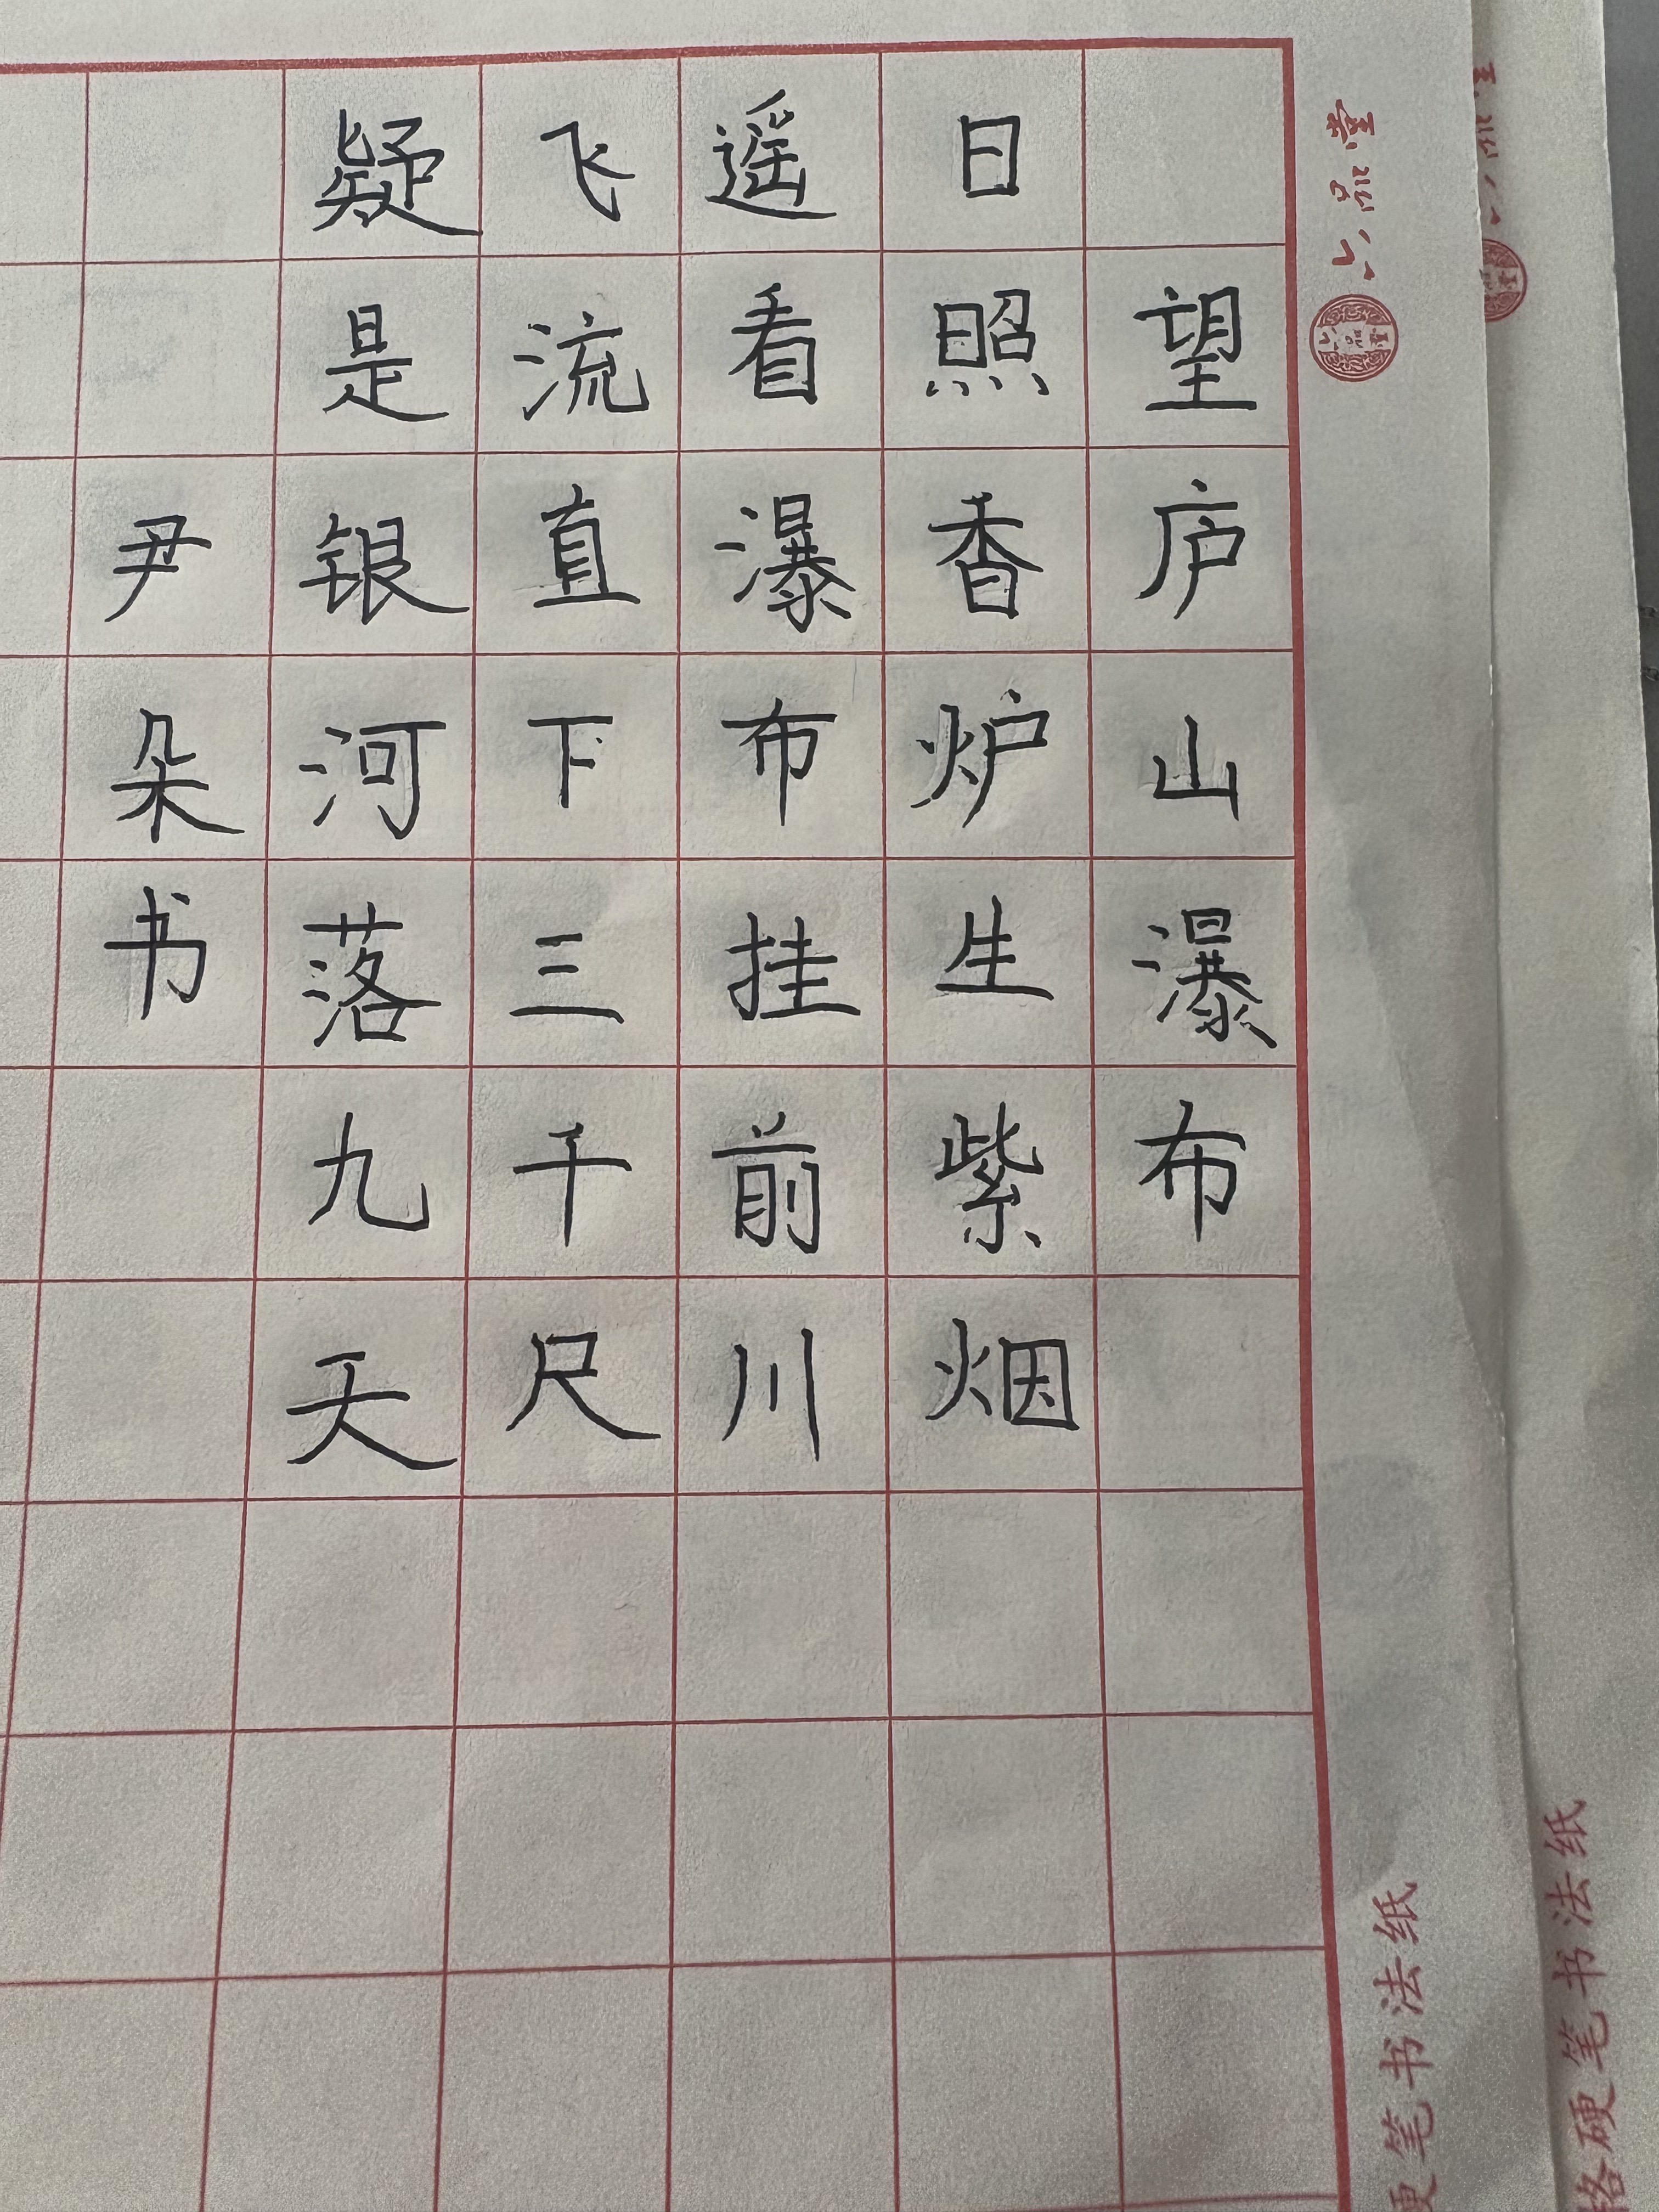 望庐山瀑布
日照香炉生紫烟
遥看瀑布挂前川
飞流直下三千尺
疑是银河落九天
尹朵书
六品堂
六品堂
硬笔书法纸
格硬笔书法纸